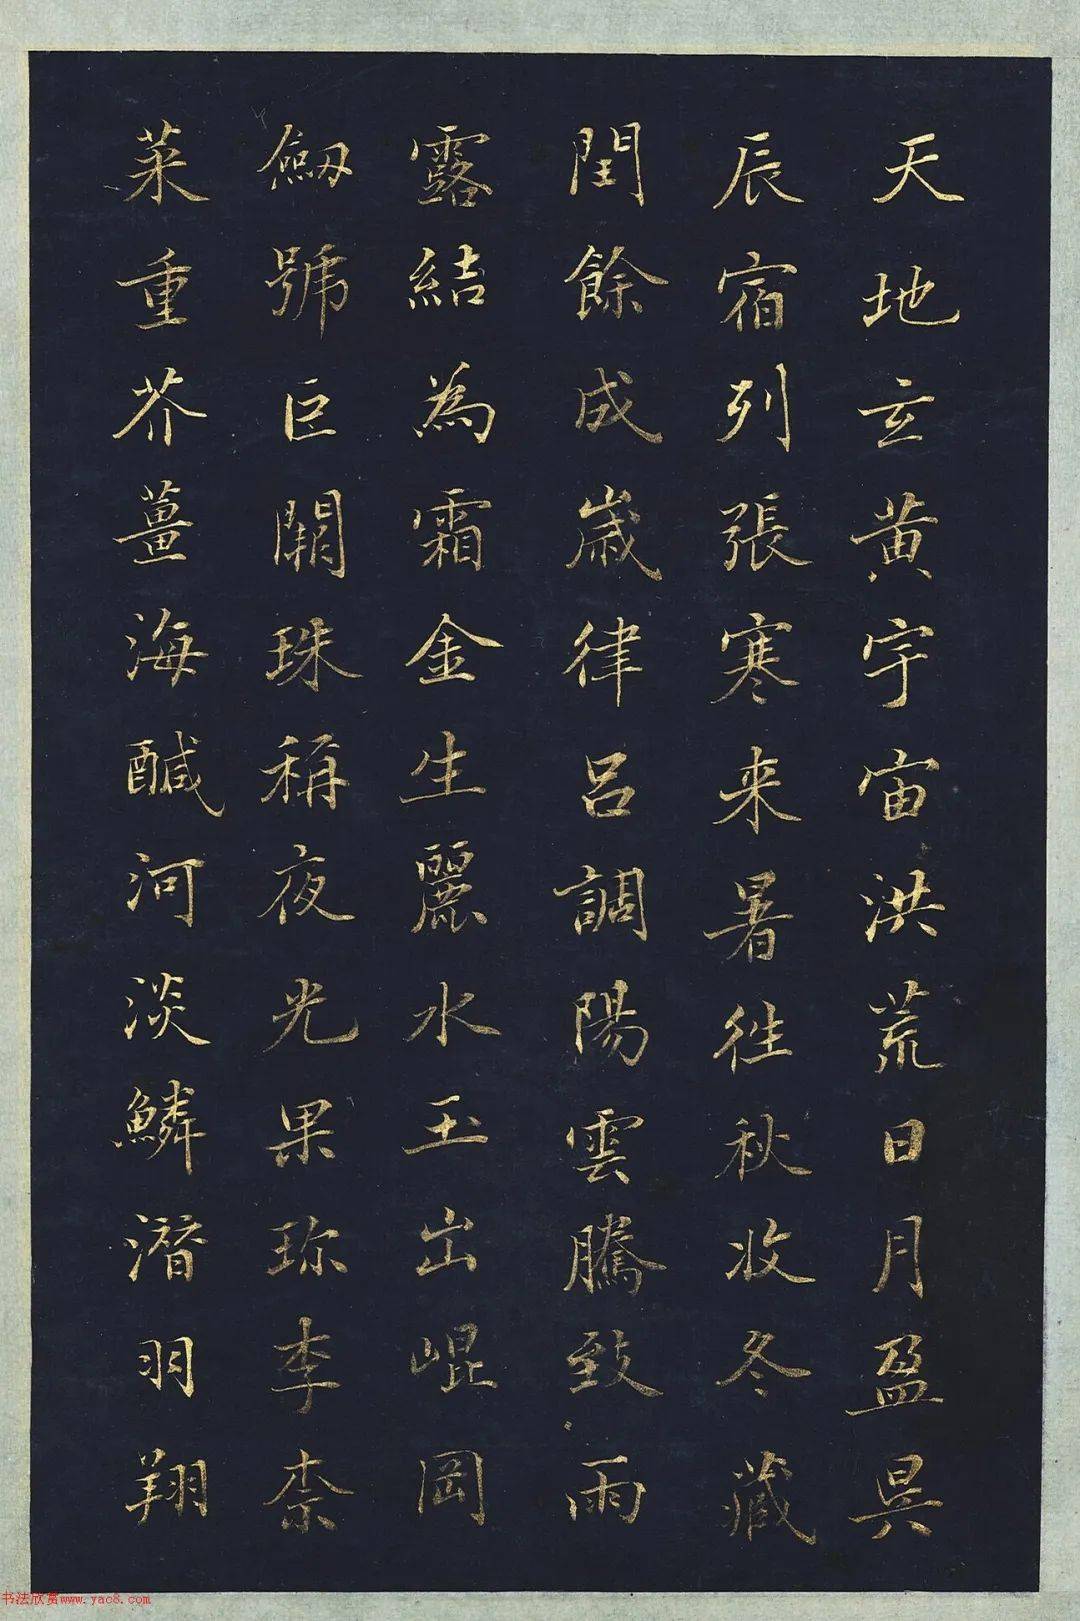 天地玄黄宇宙洪荒日月盈昃
辰宿列張寒来暑徃秋收冬藏
閏餘成歲律吕調陽雲騰致雨
露結為霜金生麗水玉出崐岡
劔號巨闕珠稱夜光果珎李柰
菜重芥薑海醎河淡鱗潛羽翔
书法欣赏www.yac8.com